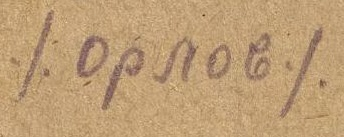 /. Орлов /.